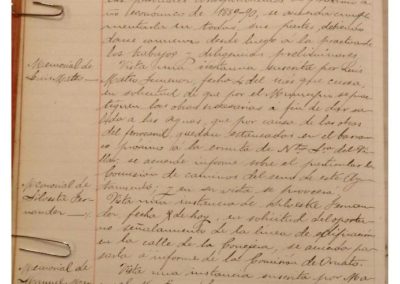 año económico de 1889-90, se acuerda cumpli-
mentarla en todas sus partes, debiendo
darse comienzo desde luego a la practica de
los trabajos y diligencias preliminares.
Memorial de
Luis Mateo
Vista una instancia suscrita por Luis
Mateo fecha 4 del mes que cursa,
en solicitud de que por el Municipio se prac-
tiquen las obras necesarias a fin de dar sa-
lida a las aguas, que por causa de las obras
del ferrocarril, quedan estancadas en el barran
co proximo a la ermita de Ntra Sra del
se acuerda informe sobre el particular la
Comision de caminos del seno de este Ay-
tamiento; y en su vista se proveera.
Memorial de
Silvestre Fer-
nander
Vista una instancia de Silvestre Fernan-
der, fecha de hoy, en solicitud del oportu-
no señalamiento de la linea de edificacion
en la calle de la Consejera, se acuerda pa-
sarla a informe de la Comision de Ornato.
Memorial de
Manuel
Vista una instancia suscrita por Ma-